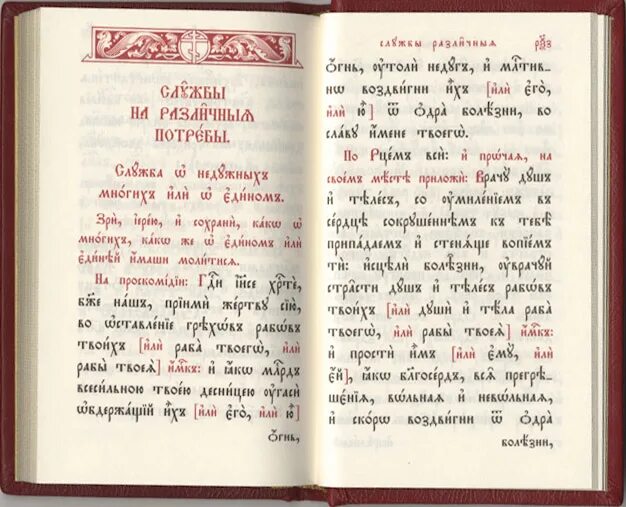 СЛꙊ́ЖБЫ
НА РАЗЛИ̑ЧНЫѦ
ПОТРЕ́БЫ.
Слꙋ́жба ѡ҆ недꙋ́жныхъ
мно́гихъ и҆лѝ ѡ҆ є҆ди́номъ.
Зрѝ, і҆ере́ю, и҆ сохранѝ, ка́кѡ ѡ҆
мно́гихъ, ка́кѡ же ѡ҆ є҆ди́номъ и҆лѝ
є҆ди́нѣй и҆́маши моли́тисѧ.
На проскомі́дїи: Гдⷭ҇и і҆и҃се хрⷭ҇те́,
бж҃е на́шъ, прїимѝ же́ртвꙋ сїю̀,
во ѡ҆ставле́нїе грѣхѡ́въ рабѡ́въ
твои́хъ [и҆лѝ раба̀ твоегѡ̀, и҆лѝ
рабы̀ твоеѧ̀] и҆́м҃къ: и҆ ꙗ҆́кѡ млⷭ҇рдъ
всеси́льною твое́ю десни́цею ᲂу҆гасѝ
ѡ҆бдержа́щїй и҆̀хъ [и҆лѝ є҆го̀, и҆лѝ ю҆̀]
ѻ҆́гнь,
слꙋ́жбы разли̑чныѧ рꙁ҃з
ѻ҆́гнь, ᲂу҆толѝ недꙋ́гъ, и҆ млⷭ҇тив-
нѡ воздви́гни и҆̀хъ [и҆лѝ є҆го̀,
и҆лѝ ю҆̀] ѿ ѻ҆дра̀ болѣ́зни, во
сла́вꙋ и҆́мене твоегѡ̀.
По Рце́мъ всѝ: и҆ прѡ́чаѧ, на
свое́мъ мѣ́стѣ приложѝ: Врачꙋ̀ дꙋ́шъ
и҆ тѣле́съ, со ᲂу҆миле́нїемъ въ
се́рдцѣ сокрꙋше́ннѣмъ къ тебѣ̀
припа́даемъ и҆ стеня́ще вопїе́мъ
тѝ: и҆сцѣлѝ болѣ̑зни, ᲂу҆врачꙋ́й
стра̑сти дꙋ́шъ и҆ тѣле́съ рабѡ́въ
твои́хъ [и҆лѝ дꙋшѝ и҆ тѣ́ла раба̀
твоегѡ̀, и҆лѝ рабы̀ твоеѧ̀] и҆́м҃къ:
и҆ простѝ и҆̀мъ [и҆лѝ є҆мꙋ̀, и҆лѝ
є҆́й], ꙗ҆́кѡ бл҃госе́рдъ, всѧ̑ прегрѣ-
шє́нїѧ, вѡ́льнаѧ и҆ невѡ́льнаѧ,
и҆ ско́рѡ воздви́гни ѿ ѻ҆дра̀
болѣ́зни,